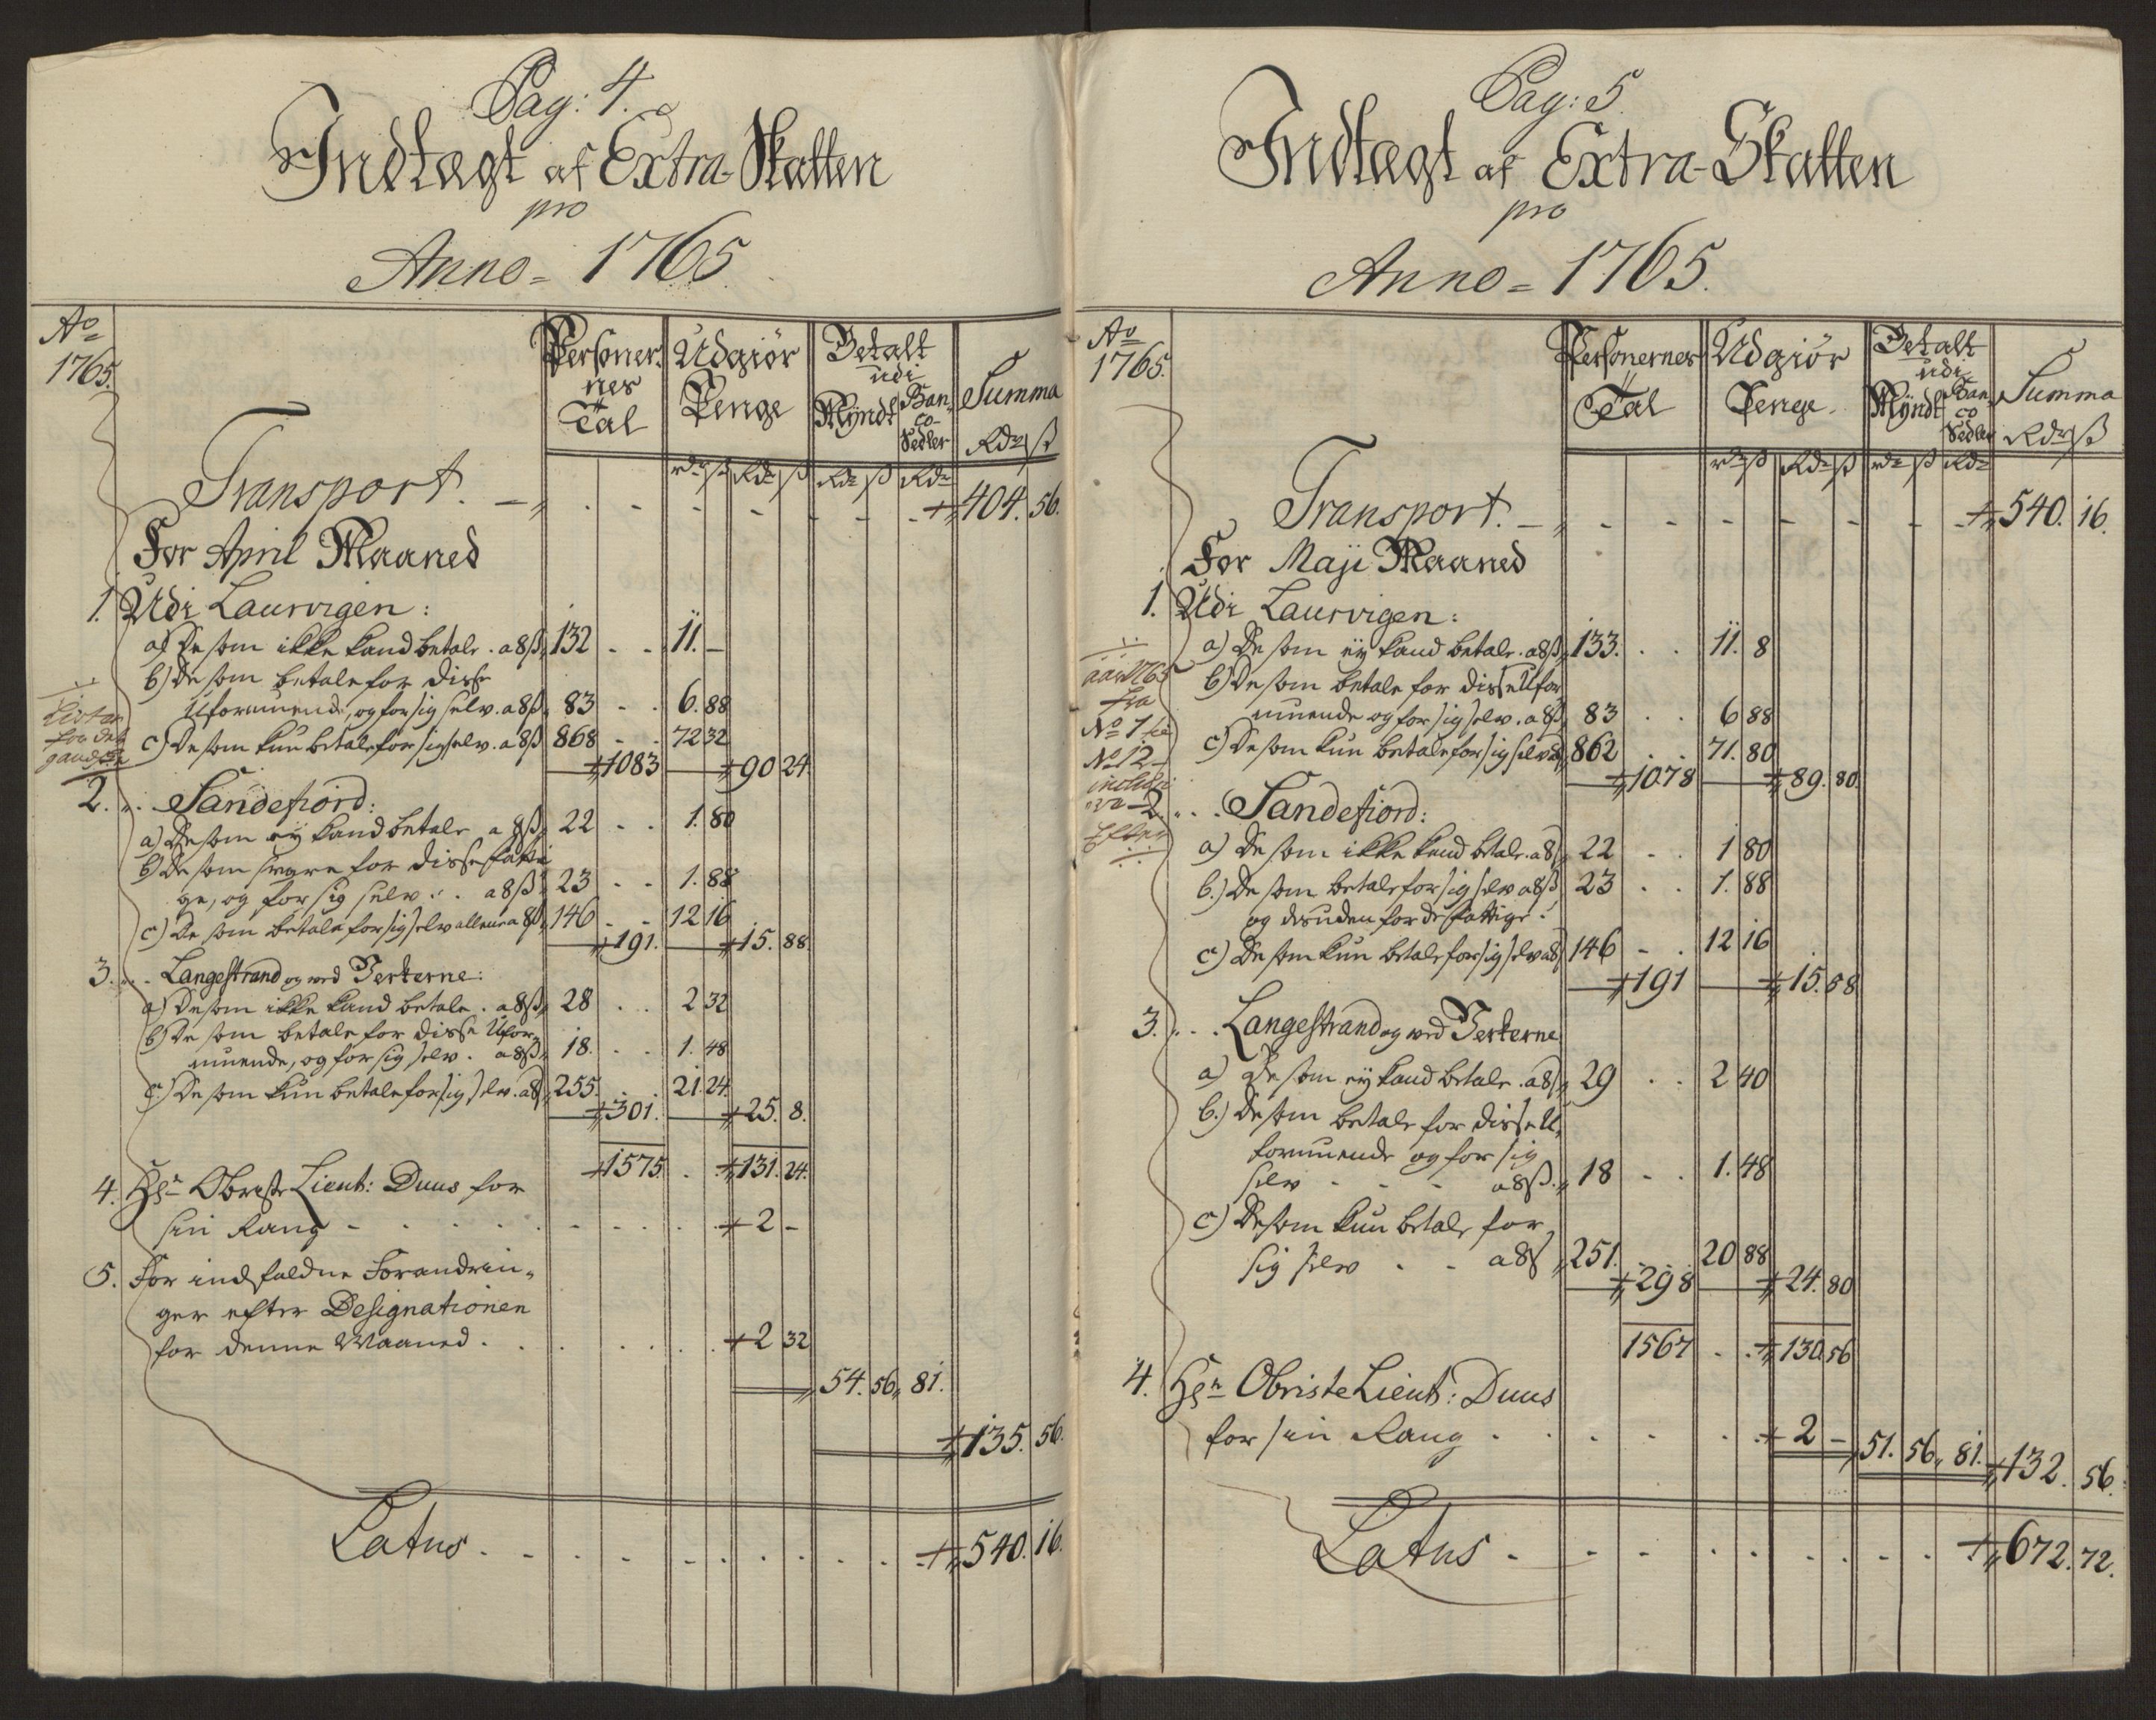 Pag: 4.
Indtægt af Extra-Skatten
pro
Anno = 1765
Ao
1765.
Personer-
nes
Tal
Udgiør
Penge
Betalt
udi
Myndt
Ban-
co-
Sedler
Summa
Rdr ß
rdr ß Rdr ß Rdr ß Rdr
Transport. - - - - - - - 404. 56.
For April Maaned
1. Udi Laurvigen:
a) De som ikke kand betale. a 8 ß 132 - - 11. -
b) De som betale for disse
Uformuende, og for sig selv. a 8 ß 83 - - 6. 88
c) De som kun betale for sig selv. a 8 ß 868 - - 72 32
1083 90 24.
2. Sandefiord:
a) De som ey kand betale a 8 ß 22 - - 1. 80
b) De som svare for disse fatti
ge, og for sig selv. . a 8 ß 23 - - 1. 88
c) De som betale for sig selv allene a 8 ß 146 - - 12 16
191. 15. 88.
3. Langestrand og ved Verkerne:
a) De som ikke kand betale. a 8 ß 28 - - 2 32
b) De som betale for disse Ufor-
muende, og for sig selv. a 8 ß 18. - - 1. 48
c.) De som kun betale for sig selv. a 8 255. - - 21. 24.
301. 25. 8.
1575. 131. 24.
4. Hr Obrist Lieut: Duus for
sin Rang - - - - - 2 -
5. For indfaldne Forandrin-
ger efter Designationen
for denne Maaned. - - - - 2 32
54. 56. 81.
135. 56.
Latus. - - - - - - - 540. 16.
Pag: 5
Indtægt af Extra-Skatten
pro
Anno = 1765.
Ao
1765.
Personernes
Tal
Udgiør
Penge.
Betalt
udi
Myndt
Ban-
co
Sedler
Summa
Rdr ß
rdr ß Rdr ß rdr ß Rdr
Transport. - - - - - - - 540. 16.
For Maji Maaned
1. Udi Laurvigen:
a) De som ey kand betale. a 8 ß 133. - - 11. 8
b) De som betale for disse Ufor
muende og for sig selv. a 8 ß 83 - - 6 88
c) De som kun betale for sig selv a 8 862 - - 71. 80
1078 89. 80.
2. Sandefiord:
a) De som ikke kand betale. a 8 22 - - 1 80
b.) De som betale for sig selv a 8 ß 23 - - 1. 88
og desuden for de fattige.
c) De som kun betale for sig selv a 8 146 - - 12 16
191 15. 88
3. Langestrand og ved Verkerne
a) De som ey kand betale. a 8 29 - - 2 40
b.) De som betale for disse U-
formuende og for sig
selv - - - a 8 ß. 18 - - 1. 48
c) De som kun betale for
sig selv - - a 8 251. - - 20 88
298 24. 80
1567 - - 130. 56
4. Hr Obriste Lieut: Duus
for sin Rang - - - - - 2 - 51. 56. 81. 132. 56.
Latus - - - - - - - 672. 72.
aar 1765
fra
No 1 til
No 12